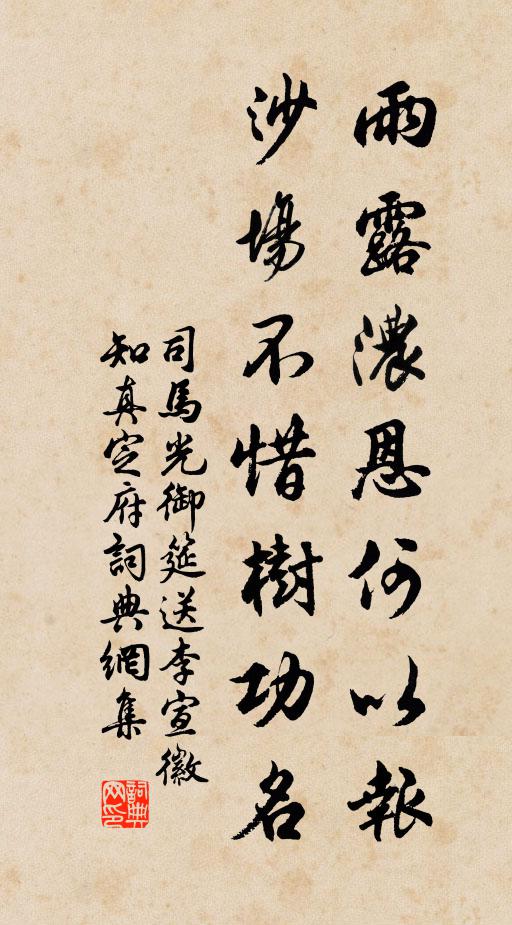 雨露濃恩何以報
沙場不惜樹功名
司馬光御筵送李宣徽
知真定府詞典網集
詞典网印